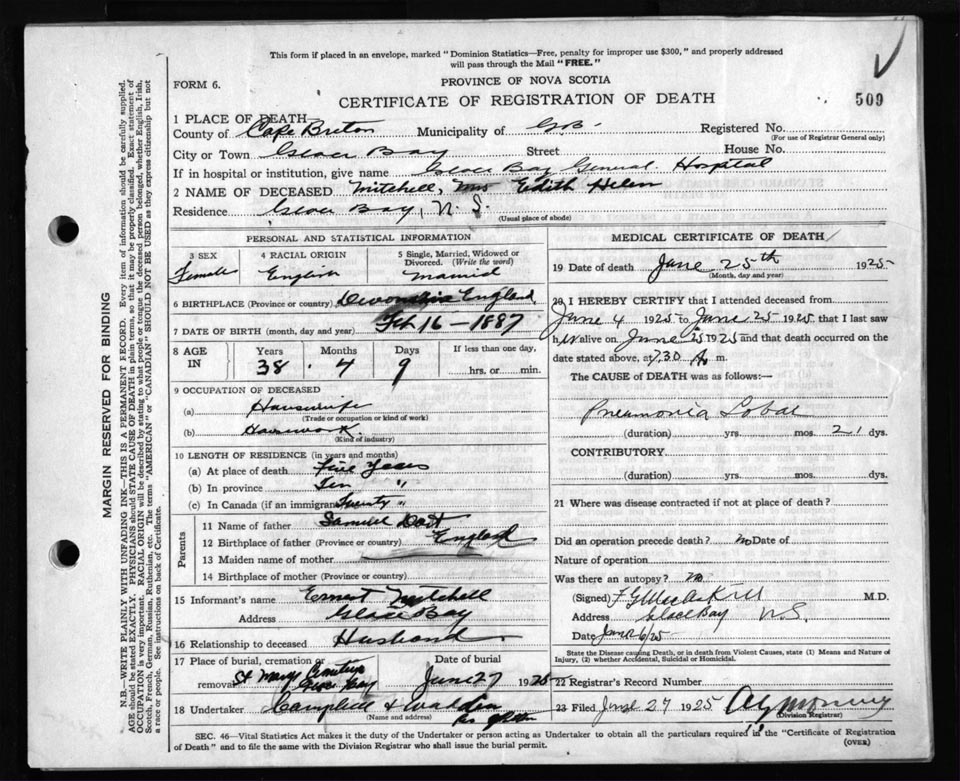 This form if placed in an envelope, marked "Dominion Statistics—Free, penalty for improper use $300," and properly addressed
will pass through the Mail "FREE."
FORM 6.
PROVINCE OF NOVA SCOTIA
CERTIFICATE OF REGISTRATION OF DEATH
509
1 PLACE OF DEATH
County of Cape Breton Municipality of G.B. Registered No.
(For use of Registrar General only)
City or Town Glace Bay Street House No.
If in hospital or institution, give name Glace Bay General Hospital
2 NAME OF DECEASED Mitchell, Mrs Edith Helen
Residence Glace Bay, N. S.
(Usual place of abode)
PERSONAL AND STATISTICAL INFORMATION
3 SEX
Female
4 RACIAL ORIGIN
English
5 Single, Married, Widowed or
Divorced. (Write the word)
Married
6 BIRTHPLACE (Province or country) Devonshire England
7 DATE OF BIRTH (month, day and year) Feb 16 - 1887
8 AGE IN
Years Months Days
38 4 9
If less than one day,
hrs. or min.
9 OCCUPATION OF DECEASED
(a) Housewife
(Trade or occupation or kind of work)
(b) Housework.
(Kind of industry)
10 LENGTH OF RESIDENCE (in years and months)
(a) At place of death Five Years
(b) In province Ten "
(c) In Canada (if an immigrant) Twenty "
Parents
11 Name of father Samuel
12 Birthplace of father (Province or country) England
13 Maiden name of mother
14 Birthplace of mother (Province or country)
15 Informant's name Ernest Mitchell
Address Glace Bay
16 Relationship to deceased Husband
17 Place of burial, cremation or
removal St Marys Cemetery
Glace Bay
Date of burial
June 27 1925
18 Undertaker Campbell &
(Name and address)
MEDICAL CERTIFICATE OF DEATH
19 Date of death June 25th 1925
(Month, day and year)
20 I HEREBY CERTIFY that I attended deceased from
June 4 1925 to June 25 1925, that I last saw
her alive on June 25 1925 and that death occurred on the
date stated above, at 7.30 A m.
The CAUSE of DEATH was as follows:—
Pneumonia Lobar
(duration) yrs. mos. 21 dys.
CONTRIBUTORY.
(duration) yrs. mos. dys.
21 Where was disease contracted if not at place of death?
Did an operation precede death? no Date of
Nature of operation
Was there an autopsy? no
(Signed) M.D.
Address Glace Bay N.S.
Date June 26/25
State the Disease causing Death, or in death from Violent Causes, state (1) Means and Nature of
Injury, (2) whether Accidental, Suicidal or Homicidal.
22 Registrar's Record Number
23 Filed June 27 1925
(Division Registrar)
SEC. 46—Vital Statistics Act makes it the duty of the Undertaker or person acting as Undertaker to obtain all the particulars required in the "Certificate of Registration
of Death" and to file the same with the Division Registrar who shall issue the burial permit.
(OVER)
MARGIN RESERVED FOR BINDING
N.B.—WRITE PLAINLY WITH UNFADING INK—THIS IS A PERMANENT RECORD. Every item of information should be carefully supplied.
AGE should be stated EXACTLY. PHYSICIANS should STATE CAUSE OF DEATH in plain terms, so that it may be properly classified. Exact statement of
OCCUPATION is very important. RACIAL ORIGIN will be described by stating to what people or tongue the deceased person belonged, whether English, Irish,
Scotch, French, German, Russian, Ruthenian, etc. The terms "AMERICAN" or "CANADIAN" SHOULD NOT BE USED as they express citizenship but not
a race or people. See instructions on back of Certificate.